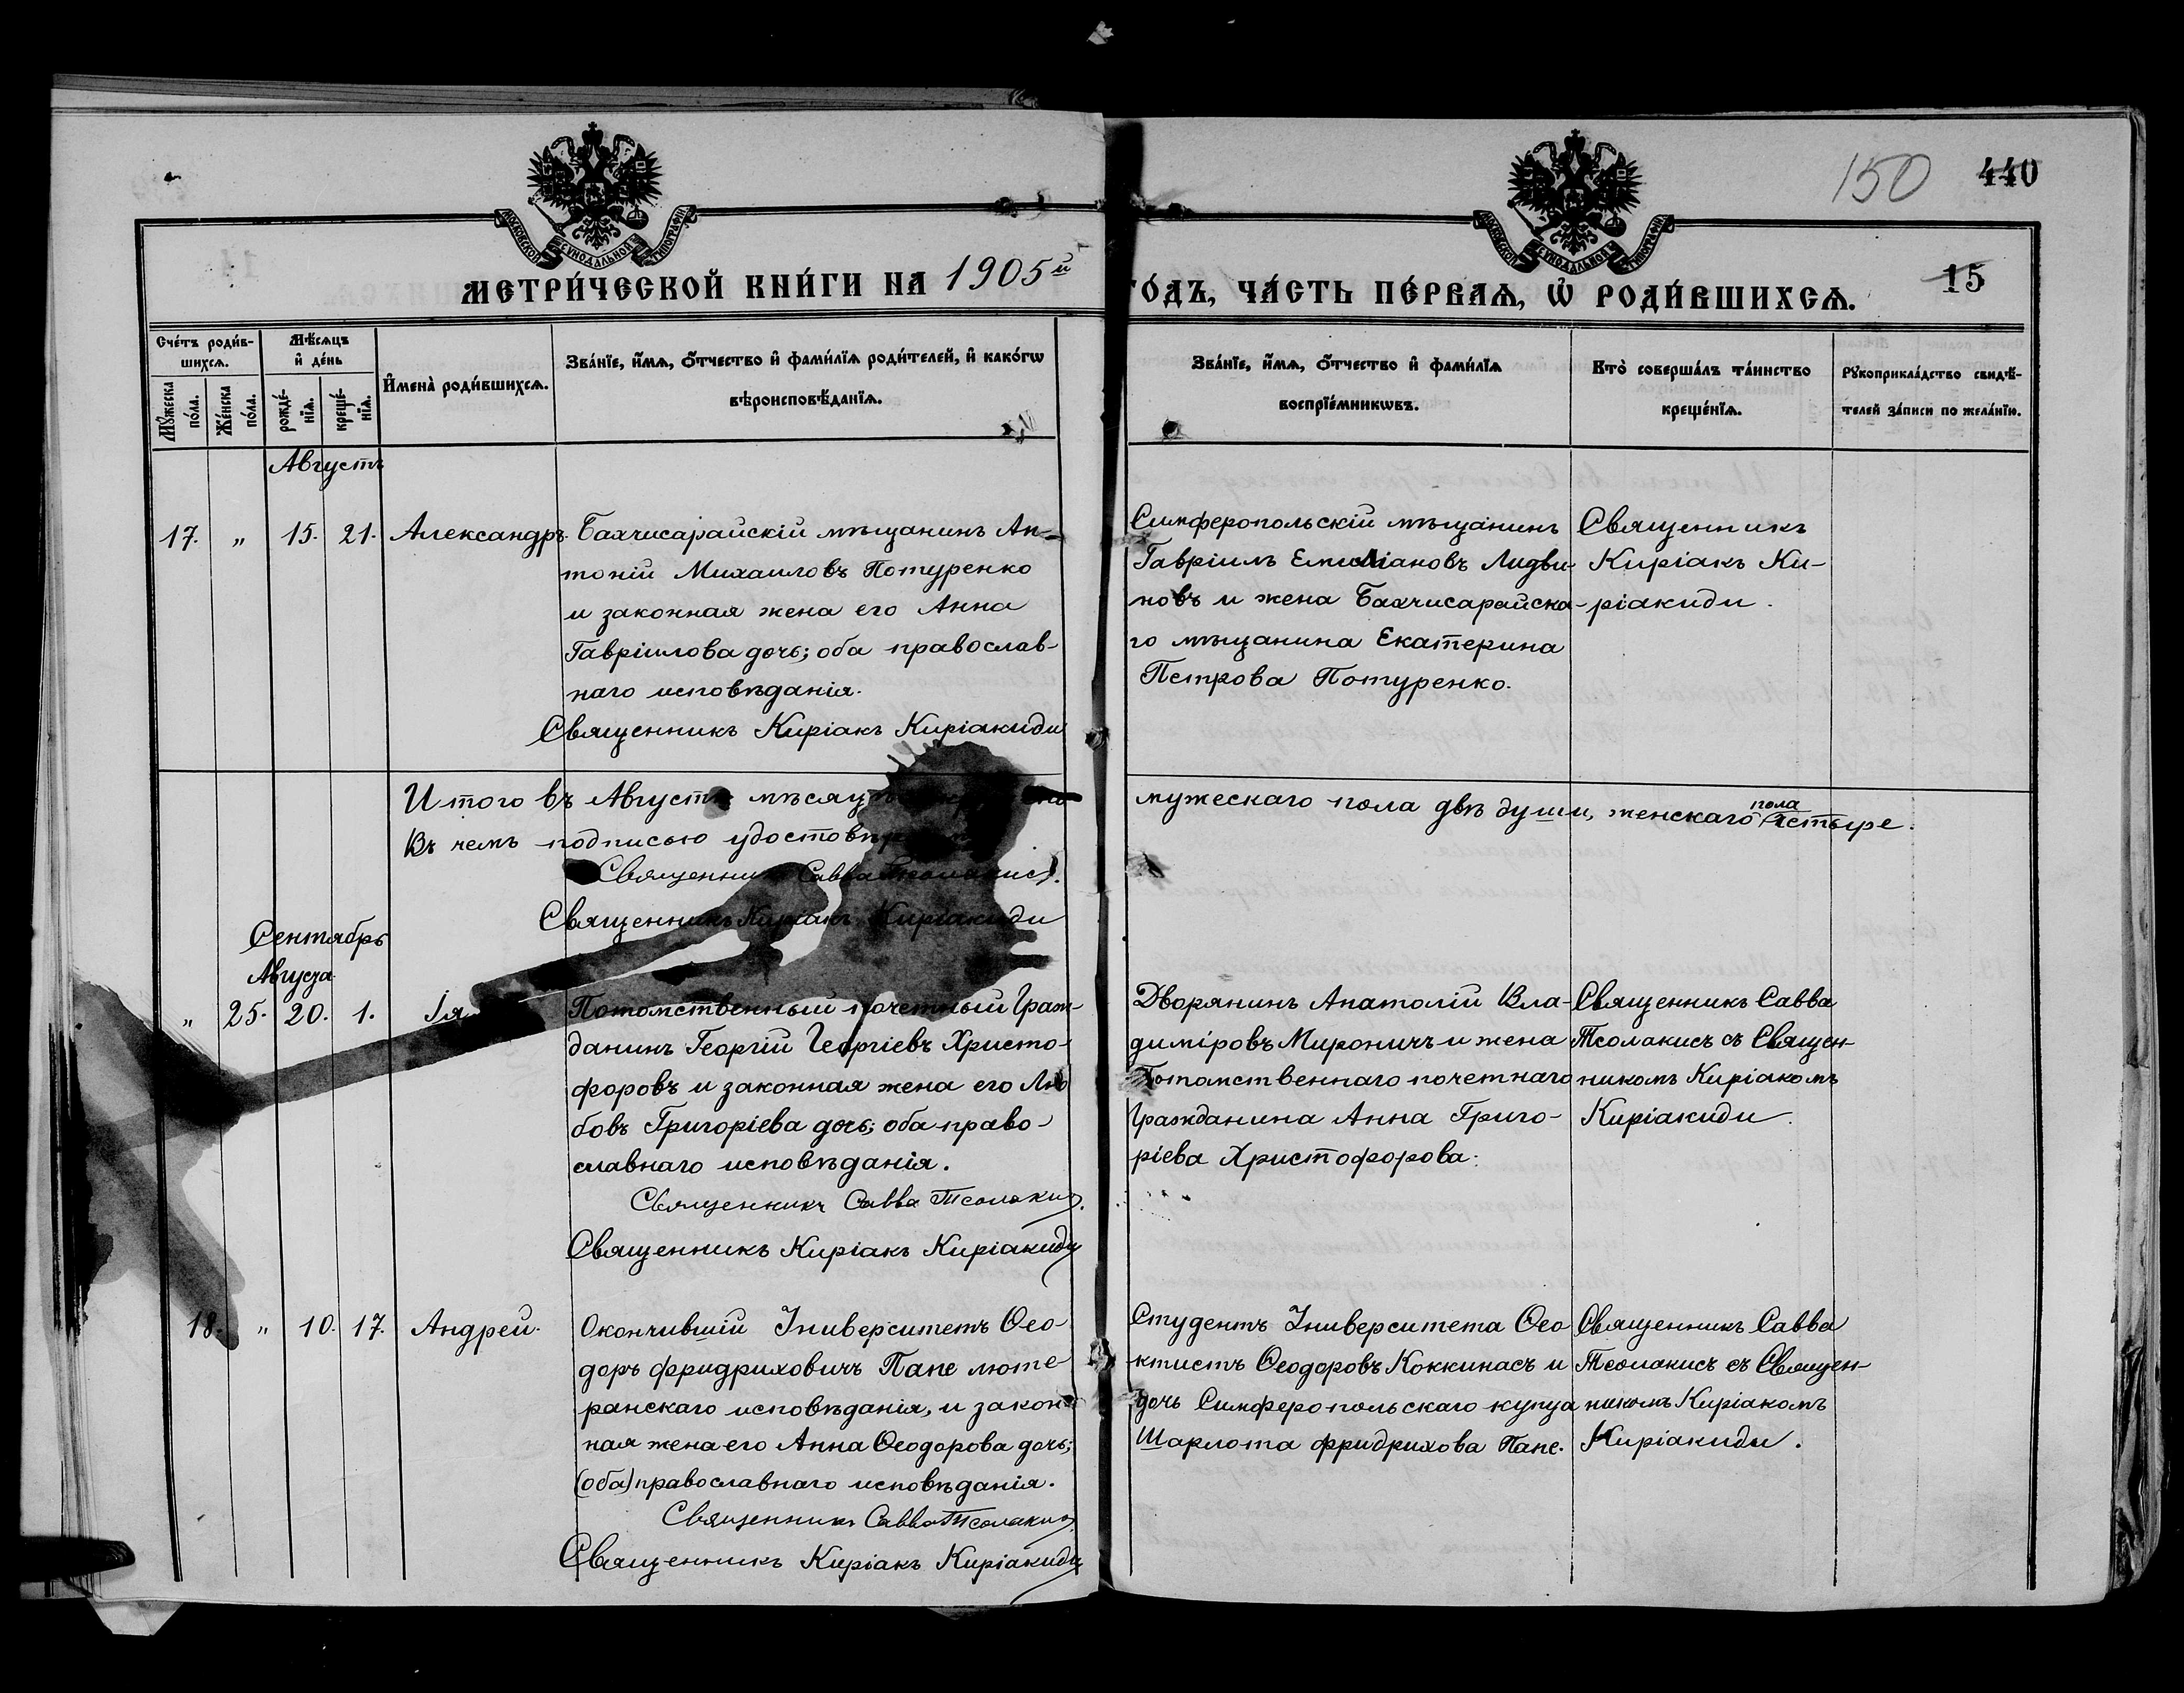 150 440
МОСКОВСКОЙ СѴНОДАЛЬНОЙ ТИПОГРАФІИ
МОСКОВСКОЙ СѴНОДАЛЬНОЙ ТИПОГРАФІИ
МЕТРИ́ЧЕСКОЙ КНИ́ГИ НА 1905й
ГО́ДЪ, ЧА́СТЬ ПЕ́РВАѦ, Ѡ҆ РОДИ́ВШИХСѦ.
15
Сче́тъ роди́в-
шихсѧ.
Мꙋ́жеска по́ла.
Же́нска по́ла.
Мѣ́сѧцъ
и҆ де́нь
рожде́-
нїѧ.
креще́-
нїѧ.
И҆мена̀ роди́вшихсѧ.
Зва́нїе, и҆́мѧ, ѻ҆́тчество и҆ фами́лїѧ роди́телей, и҆ како́гѡ
вѣроисповѣ́данїѧ.
Зва́нїе, и҆́мѧ, ѻ҆́тчество и҆ фами́лїѧ
воспрїе́мникѡвъ.
Кто̀ соверша́лъ та́инство
креще́нїѧ.
Рꙋкоприкла́дство свидѣ́-
телей за́писи по жела́нїю.
Августъ
17. " 15. 21. Александръ. Бахчисарайскій мѣщанинъ Ан-
тоній Михаиловъ Потуренко
и законная жена его Анна
Гавріилова дочь; оба православ-
наго исповѣданія.
Священникъ Киріакъ Киріакиди
Симферопольскій мѣщанинъ
Гавріилъ Емиліановъ Лидви-
новъ и жена Бахчисарайска-
го мѣщанина Екатерина
Петрова Потуренко.
Священникъ
Киріакъ Ки-
ріакиди.
Итого въ Августѣ мѣсяцѣ
мужескаго пола двѣ души, женскаго пола четыре.
Въ чемъ подписью
Священникъ Савва Тсолакисъ.
Священникъ Киріакъ Киріакиди
Сентябрь
Августа
" 25. 20. 1. Ія Потомственный почетный Граж-
данинъ Георгій Георгіевъ Христо-
форовъ и законная жена его Лю
бовъ Григоріева дочь; оба право-
славнаго исповѣданія.
Священникъ Савва Тсолакис.
Священникъ Киріакъ Киріакиди
Дворянинъ Анатолій Вла-
диміровъ Мироничъ и жена
Потомственнаго почетнаго
Гражданина Анна Григо-
ріева Христофорова.
Священникъ Савва
Тсолакисъ съ Священ-
никомъ Киріакомъ
Киріакиди.
18. " 10. 17. Андрей. Окончившій Университетъ Ѳео-
доръ Фридриховичъ Папе люте-
ранскаго исповѣданія, и закон
ная жена его Анна Ѳеодорова дочь;
(оба) православнаго исповѣданія.
Священникъ Савва Тсолакис.
Священникъ Киріакъ Киріакиди
Студентъ Университета Ѳео
ктистъ Ѳеодоровъ Коккинасъ и
дочь Симферопольскаго купца
Шарлота Фридрихова Папе.
Священникъ Савва
Тсолакисъ съ Священ-
никомъ Киріакомъ
Киріакиди.